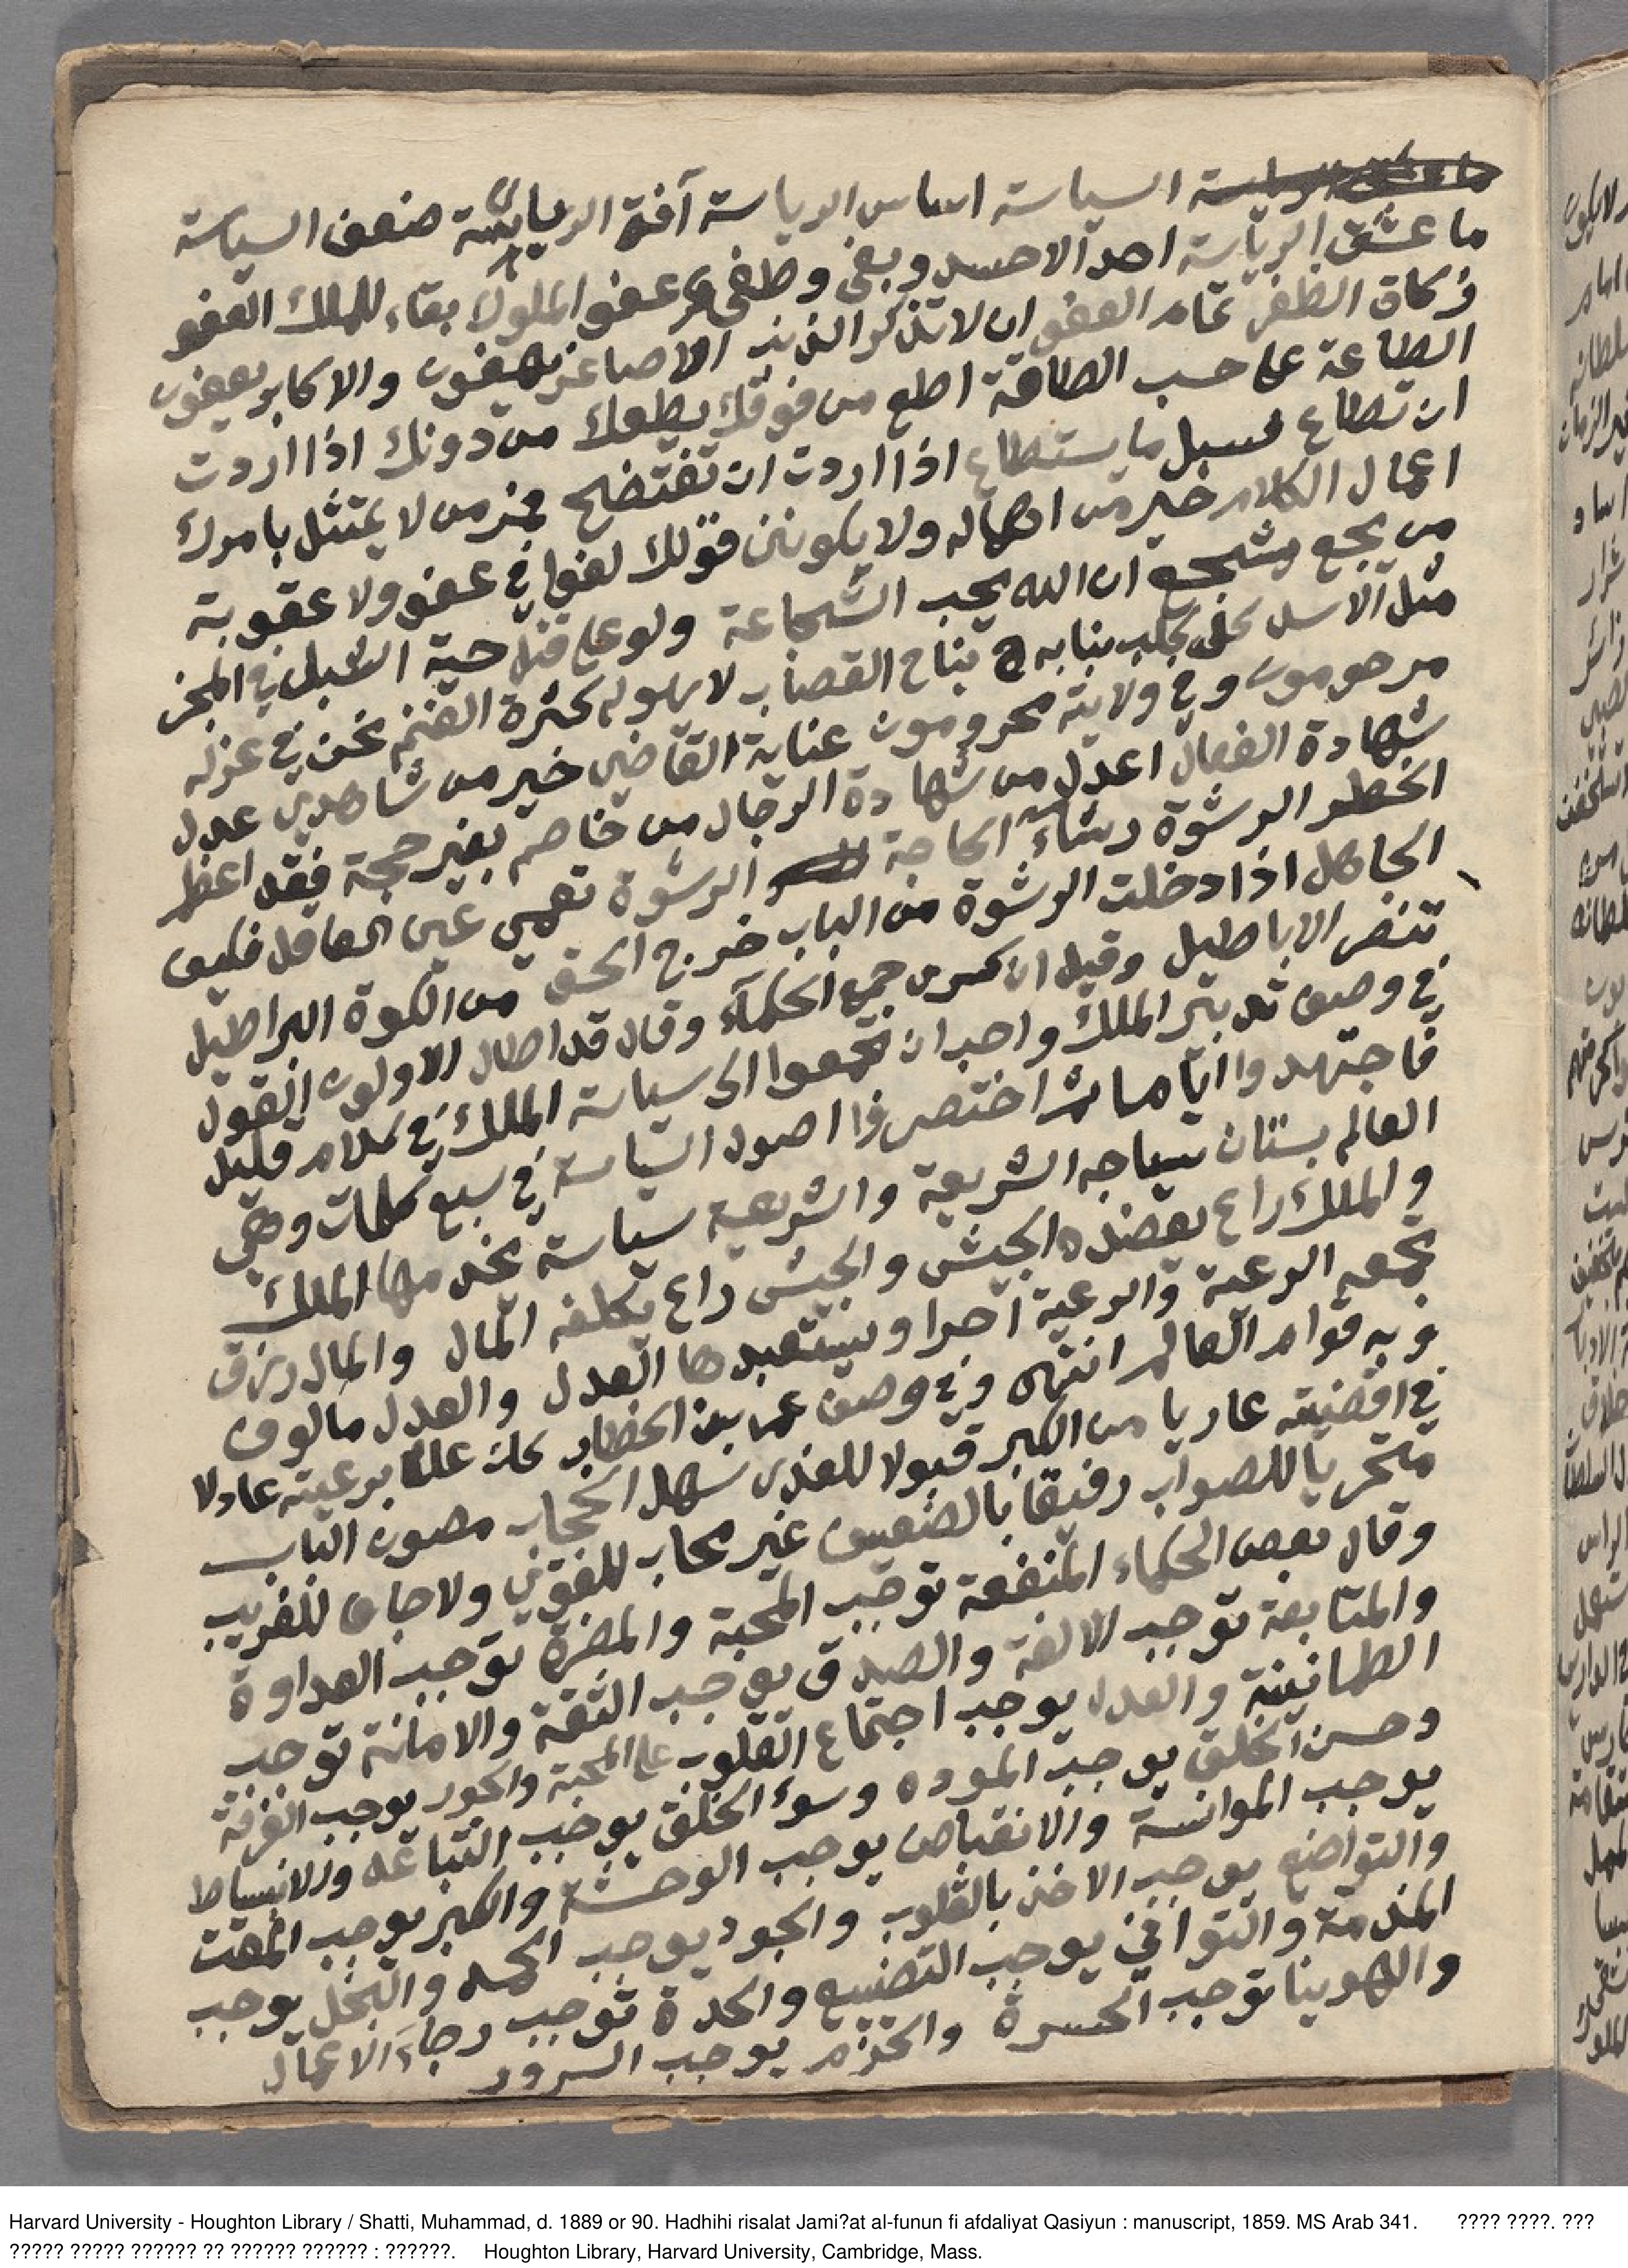 السياسة اساس الرياسة آفة الرياسة ضعف السياسة
ما عشق الرياسة احد الا حسد وبغى وطغى عفو الملوك بقاء للملك العفو
زكاة الظفر تمام العفو ان لا تذكر الذنب الاصاغر يهفون والاكابر يعفون
الطاعة على حسب الطاقة اطع من فوقك يطعك من دونك اذا اردت
ان تطاع فسل ما يستطاع اذا اردت ان تفتضح فمر من لا يمتثل بامرك
اعمال الكلام خير من اهماله ولا يكونن قولك لغوا في عفو ولا عقوبة
من يجمع يشجع ان الله يحب الشجاعة ولو على قتل حية الشبل في المخبر
مثل الاسد كلب بنابه نباح القصاب لا يهوله كثرة الغنم نحن في عزله
مرحومون وفي ولايته محرومون عناية القاضي خير من شاهدي عدل
شهادة الفعال اعدل من شهادة الرجال من خاصم بغير حجة فقد اعظم
الخطر الرشوة رشاء الحاجة الرشوة تعمي عين العاقل فكيف
الجاهل اذا دخلت الرشوة من الباب خرج الحق من الكوة البراطيل
تنصر الاباطيل وقيل ان كسرى جمع الحكماء وقال قد اطال الاولون القول
في وصف تدبير الملك واحب ان تجمعوا الى سياسة الملك في كلام قليل
فاجتهدوا اياما ثم اختصروا اصول السياسة في سبع كلمات وهي
العالم بستان سياجه الشريعة والشريعة سياسة يخدمها الملك
والملك راع يعضده الجيش والجيش راع يكلفه المال والمال رزق
تجمعه الرعية والرعية احرار ويستعبدها العدل والعدل مالوف
وبه قوام العالم انتهى وفي وصف عمر بن الخطاب كان عالما برعيته عادلا
في اقضيته عاريا من الكبر قبولا للعذر سهل الحجاب مصون الباب
متحريا للصواب رفيقا بالضعيف غير محاب للقوي ولا جاف للغريب
وقال بعض الحكماء المنفعة توجب المحبة والمضرة توجب العداوة
والمتابعة توجب الالفة والصدق يوجب الثقة والامانة توجب
الطمانينة والعدل يوجب اجتماع القلوب على المحبة والجور يوجب الفرقة
وحسن الخلق يوجب الموده وسوء الخلق يوجب التباعد والانبساط
يوجب الموانسة والانقباض يوجب الوحشة والكبر يوجب المقت
والتواضع يوجب الاخذ بالقلوب والجود يوجب الحمد والبخل يوجب
المذمة والتواني يوجب التضييع والحدة توجب رجاء الاعمال
والهوينا توجب الحسرة والحزم يوجب السرور
Harvard University - Houghton Library / Shatti, Muhammad, d. 1889 or 90. Hadhihi risalat Jami?at al-funun fi afdaliyat Qasiyun : manuscript, 1859. MS Arab 341. ???? ????. ???
????? ????? ?????? ?? ?????? ?????? : ??????. Houghton Library, Harvard University, Cambridge, Mass.